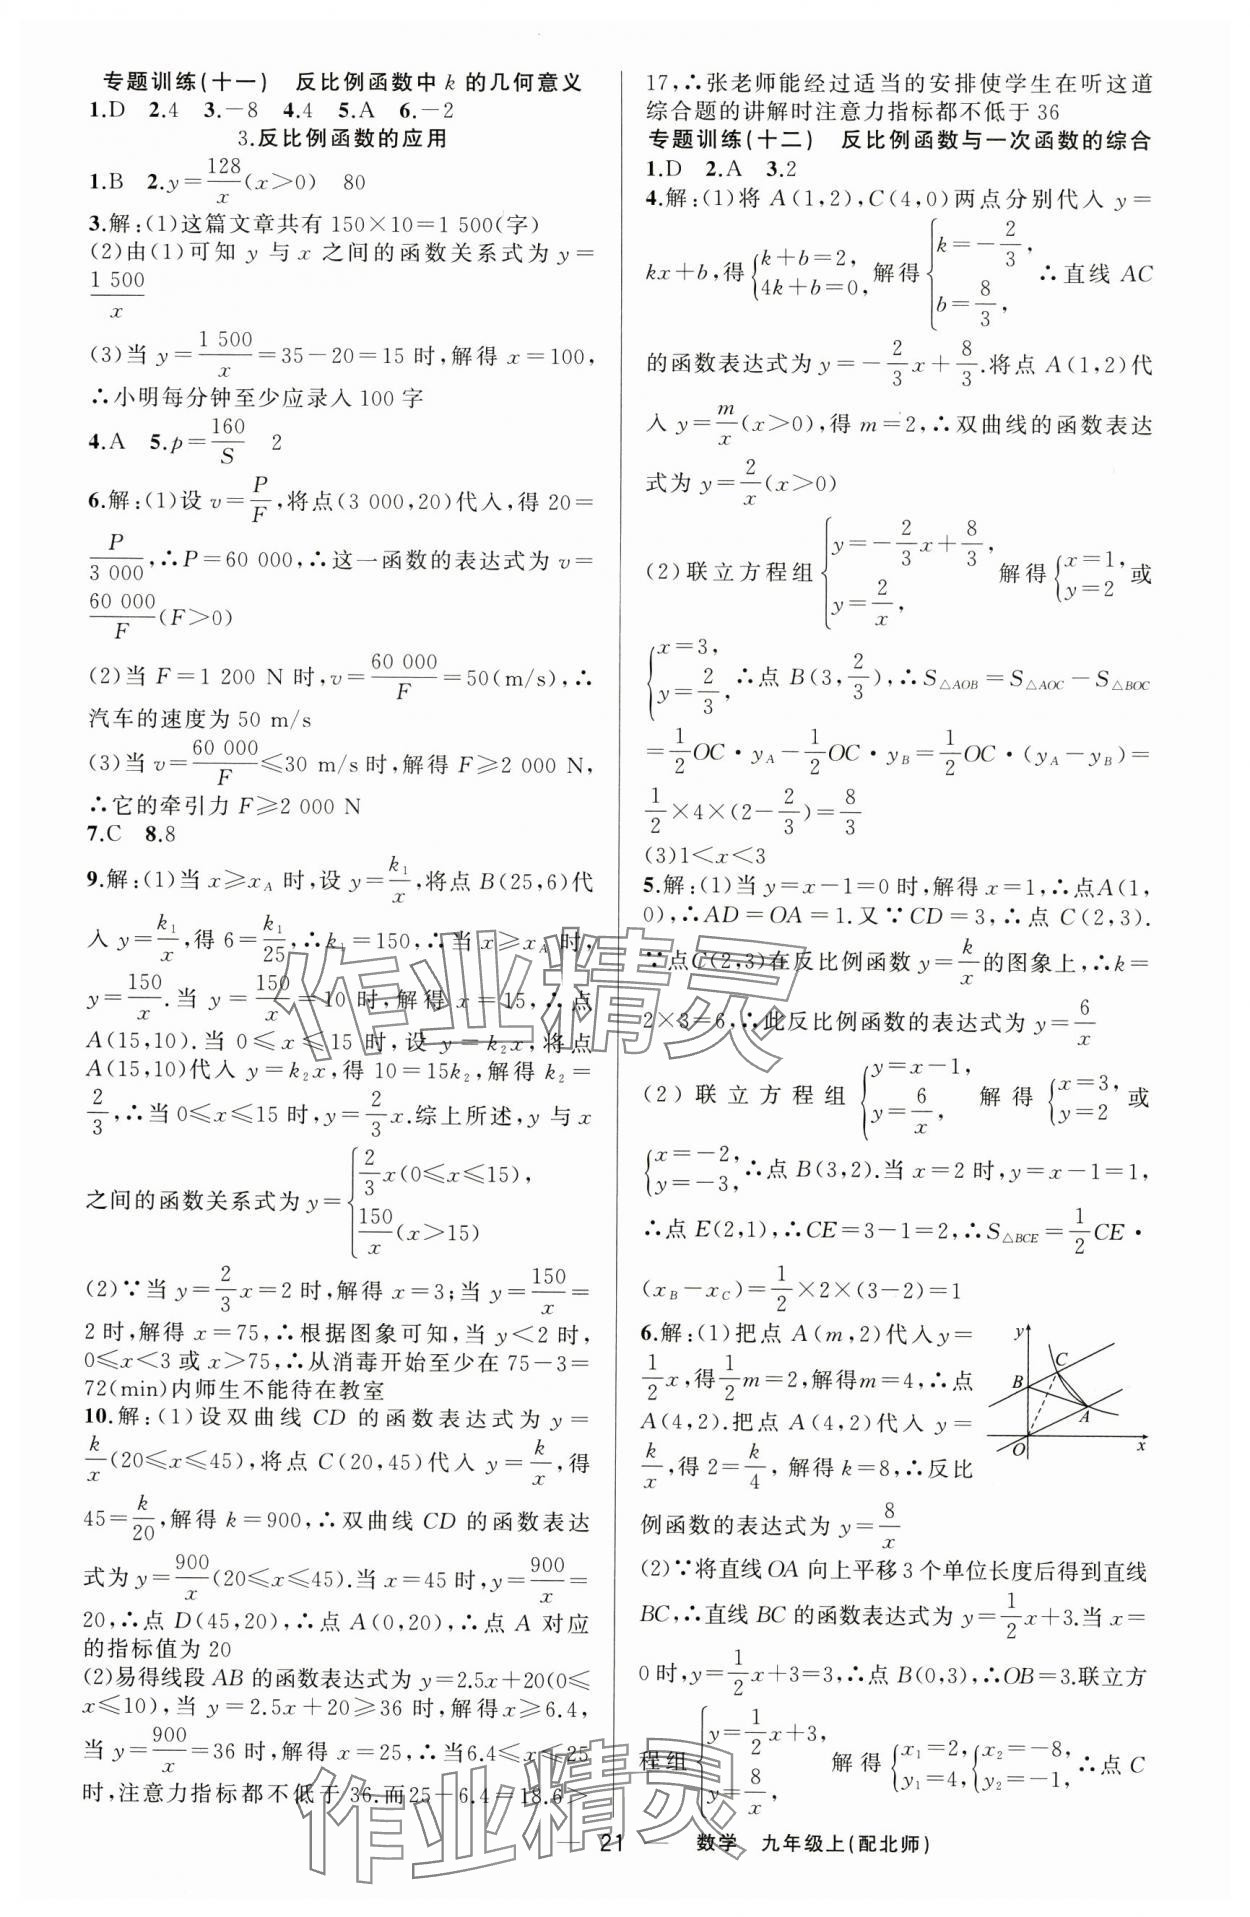 专题训练(十一)　反比例函数中 k 的几何意义
1.D　2.4　3.－8　4.4　5.A　6.－2
3.反比例函数的应用
1.B　2.y＝128/x(x＞0)　80
3.解:(1)这篇文章共有 150×10＝1 500(字)
(2)由(1)可知 y 与 x 之间的函数关系式为 y＝
1 500/x
(3)当 y＝1 500/x＝35－20＝15 时,解得 x＝100,
∴小明每分钟至少应录入 100 字
4.A　5.p＝160/S　2
6.解:(1)设 v＝P/F,将点(3 000,20)代入,得 20＝
P/3 000,∴P＝60 000,∴这一函数的表达式为 v＝
60 000/F(F＞0)
(2)当 F＝1 200 N 时,v＝60 000/F＝50(m/s),∴
汽车的速度为 50 m/s
(3)当 v＝60 000/F≤30 m/s 时,解得 F≥2 000 N,
∴它的牵引力 F≥2 000 N
7.C　8.8
9.解:(1)当 x≥x_A 时,设 y＝k₁/x,将点 B(25,6)代
入 y＝k₁/x,得 6＝k₁/25,∴k₁＝150,∴当 x≥x_A 时,
y＝150/x.当 y＝150/x＝10 时,解得 x＝15,∴点
A(15,10).当 0≤x≤15 时,设 y＝k₂x,将点
A(15,10)代入 y＝k₂x,得 10＝15k₂,解得 k₂＝
2/3,∴当 0≤x≤15 时,y＝2/3x.综上所述,y 与 x
之间的函数关系式为 y＝{2/3x(0≤x≤15), 150/x(x＞15)
(2)∵当 y＝2/3x＝2 时,解得 x＝3;当 y＝150/x＝
2 时,解得 x＝75,∴根据图象可知,当 y＜2 时,
0≤x＜3 或 x＞75,∴从消毒开始至少在 75－3＝
72(min)内师生不能待在教室
10.解:(1)设双曲线 CD 的函数表达式为 y＝
k/x(20≤x≤45),将点 C(20,45)代入 y＝k/x,得
45＝k/20,解得 k＝900,∴双曲线 CD 的函数表达
式为 y＝900/x(20≤x≤45).当 x＝45 时,y＝900/x＝
20,∴点 D(45,20),∴点 A(0,20),∴点 A 对应
的指标值为 20
(2)易得线段 AB 的函数表达式为 y＝2.5x＋20(0≤
x≤10),当 y＝2.5x＋20≥36 时,解得x≥6.4,
当 y＝900/x＝36 时,解得 x＝25,∴当6.4≤x≤25
时,注意力指标都不低于 36.而25－6.4＝18.6＞
17,∴张老师能经过适当的安排使学生在听这道
综合题的讲解时注意力指标都不低于 36
专题训练(十二)　反比例函数与一次函数的综合
1.D　2.A　3.2
4.解:(1)将 A(1,2),C(4,0)两点分别代入 y＝
kx＋b,得{k＋b＝2, 4k＋b＝0, 解得{k＝－2/3, b＝8/3, ∴直线 AC
的函数表达式为 y＝－2/3x＋8/3.将点 A(1,2)代
入 y＝m/x(x＞0),得 m＝2,∴双曲线的函数表达
式为 y＝2/x(x＞0)
(2)联立方程组{y＝－2/3x＋8/3, y＝2/x, 解得{x＝1, y＝2 或
{x＝3, y＝2/3, ∴点 B(3,2/3),∴S△AOB＝S△AOC－S△BOC
＝1/2OC·y_A－1/2OC·y_B＝1/2OC·(y_A－y_B)＝
1/2×4×(2－2/3)＝8/3
(3)1＜x＜3
5.解:(1)当 y＝x－1＝0 时,解得 x＝1,∴点A(1,
0),∴AD＝OA＝1.又∵CD＝3,∴点 C(2,3).
∵点C(2,3)在反比例函数 y＝k/x的图象上,∴k＝
2×3＝6,∴此反比例函数的表达式为 y＝6/x
(2)联立方程组{y＝x－1, y＝6/x, 解得{x＝3, y＝2 或
{x＝－2, y＝－3, ∴点 B(3,2).当 x＝2 时,y＝x－1＝1,
∴点 E(2,1),∴CE＝3－1＝2,∴S△BCE＝1/2CE·
(x_B－x_C)＝1/2×2×(3－2)＝1
6.解:(1)把点 A(m,2)代入y＝
1/2x,得1/2m＝2,解得m＝4,∴点
A(4,2).把点 A(4,2)代入 y＝
k/x,得 2＝k/4,解得 k＝8,∴反比
例函数的表达式为 y＝8/x
y
C
B
A
O
x
(2)∵将直线OA 向上平移3 个单位长度后得到直线
BC,∴直线 BC 的函数表达式为 y＝1/2x＋3.当 x＝
0 时,y＝1/2x＋3＝3,∴点 B(0,3),∴OB＝3.联立方
程组{y＝1/2x＋3, y＝8/x, 解得{x₁＝2, y₁＝4, {x₂＝－8, y₂＝－1, ∴点 C
作业精灵
作业精灵
— 21 —　数学　九年级上(配北师)